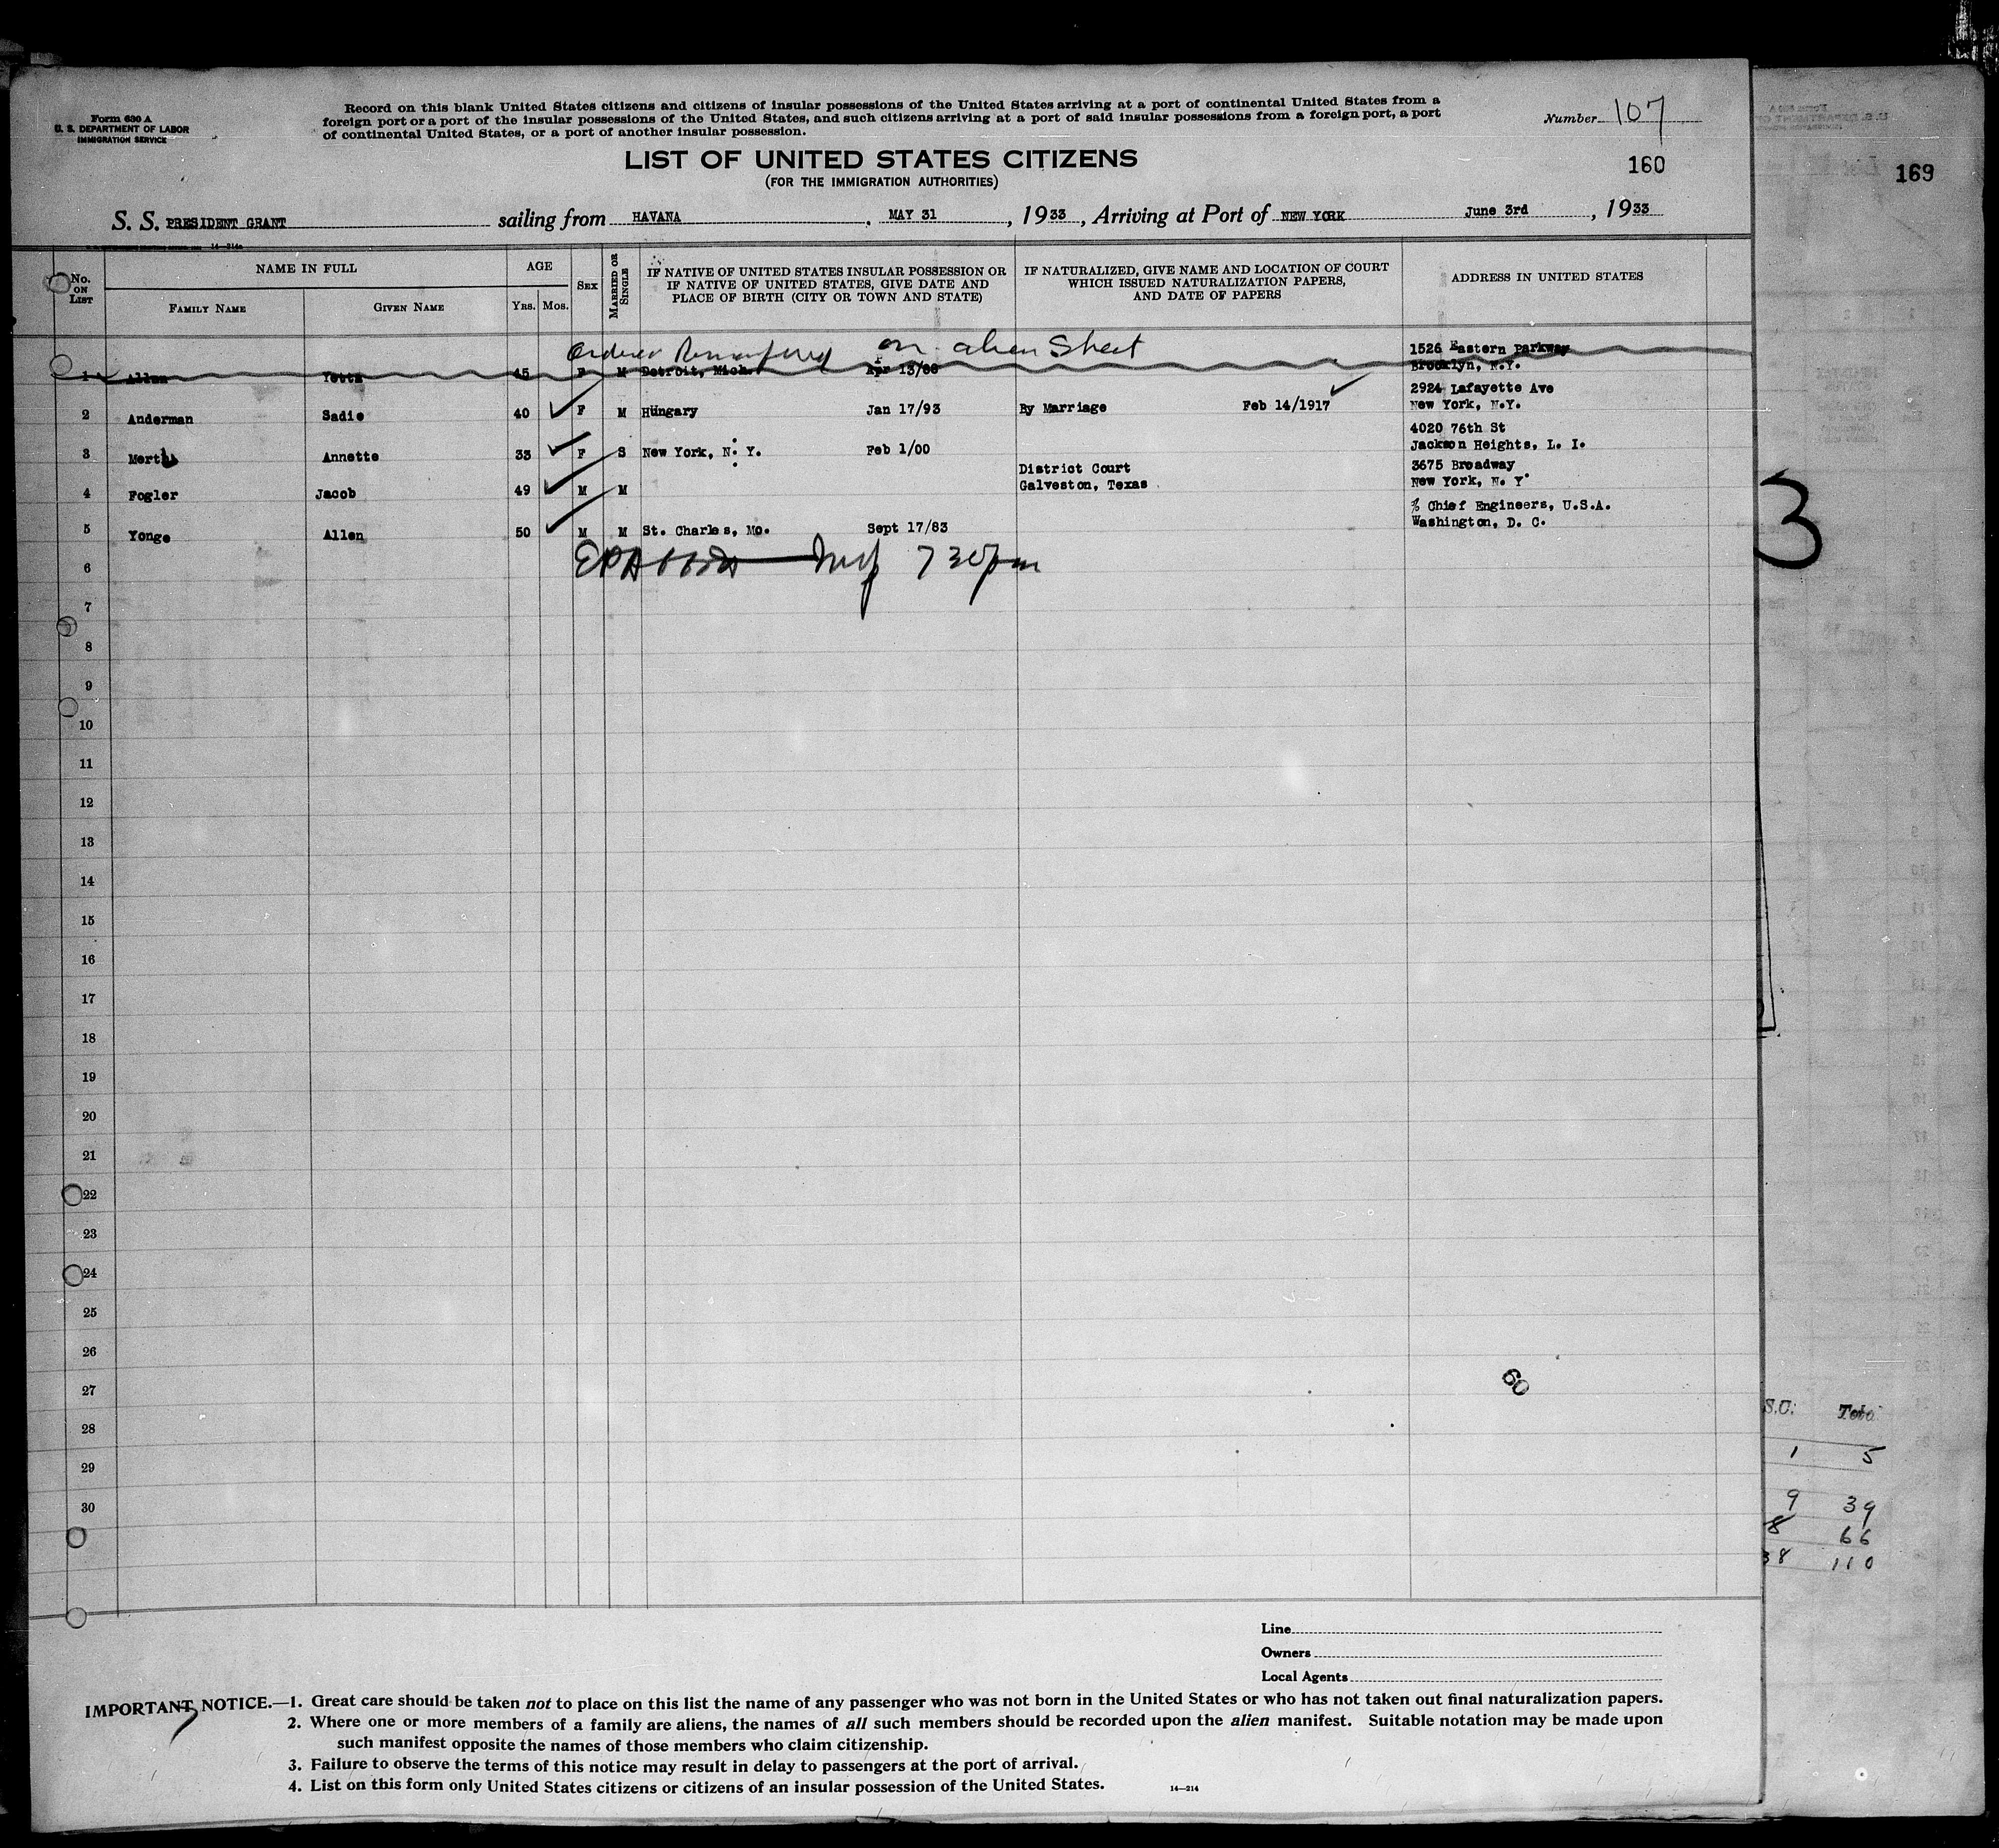 Form 630 A
U. S. DEPARTMENT OF LABOR
IMMIGRATION SERVICE
Record on this blank United States citizens and citizens of insular possessions of the United States arriving at a port of continental United States from a
foreign port or a port of the insular possessions of the United States, and such citizens arriving at a port of said insular possessions from a foreign port, a port
of continental United States, or a port of another insular possession.
Number 107
LIST OF UNITED STATES CITIZENS
(FOR THE IMMIGRATION AUTHORITIES)
160
169
S. S. PRESIDENT GRANT sailing from HAVANA, MAY 31, 1933, Arriving at Port of NEW YORK June 3rd, 1933
14—214a
No. ON LIST
NAME IN FULL
FAMILY NAME GIVEN NAME
AGE
YRS. MOS.
SEX
MARRIED OR SINGLE
IF NATIVE OF UNITED STATES INSULAR POSSESSION OR
IF NATIVE OF UNITED STATES, GIVE DATE AND
PLACE OF BIRTH (CITY OR TOWN AND STATE)
IF NATURALIZED, GIVE NAME AND LOCATION OF COURT
WHICH ISSUED NATURALIZATION PAPERS,
AND DATE OF PAPERS
ADDRESS IN UNITED STATES
on alien Sheet
1526 Eastern Parkway
1 Allen Yetta 45 F M Detroit, Mich. Apr 13/88 Brooklyn, N.Y.
2924 Lafayette Ave
2 Anderman Sadie 40 F M Hungary Jan 17/93 By Marriage Feb 14/1917 New York, N.Y.
4020 76th St
3 Merth Annette 33 F S New York, N. Y. Feb 1/00 Jackson Heights, L. I.
District Court 3675 Broadway
4 Fogler Jacob 49 M M Galveston, Texas New York, N. Y
% Chief Engineers, U.S.A.
5 Yonge Allen 50 M M St. Charles, Mo. Sept 17/83 Washington, D. C.
6 7 30 pm
3
7
8
9
10
11
12
13
14
15
16
17
18
19
20
21
22
23
24
25
26
27
60
28
29
30
S.C. Tota
1 5
9 39
8 66
38 110
Line
Owners
Local Agents
IMPORTANT NOTICE.—1. Great care should be taken not to place on this list the name of any passenger who was not born in the United States or who has not taken out final naturalization papers.
2. Where one or more members of a family are aliens, the names of all such members should be recorded upon the alien manifest. Suitable notation may be made upon
such manifest opposite the names of those members who claim citizenship.
3. Failure to observe the terms of this notice may result in delay to passengers at the port of arrival.
4. List on this form only United States citizens or citizens of an insular possession of the United States.
14—214